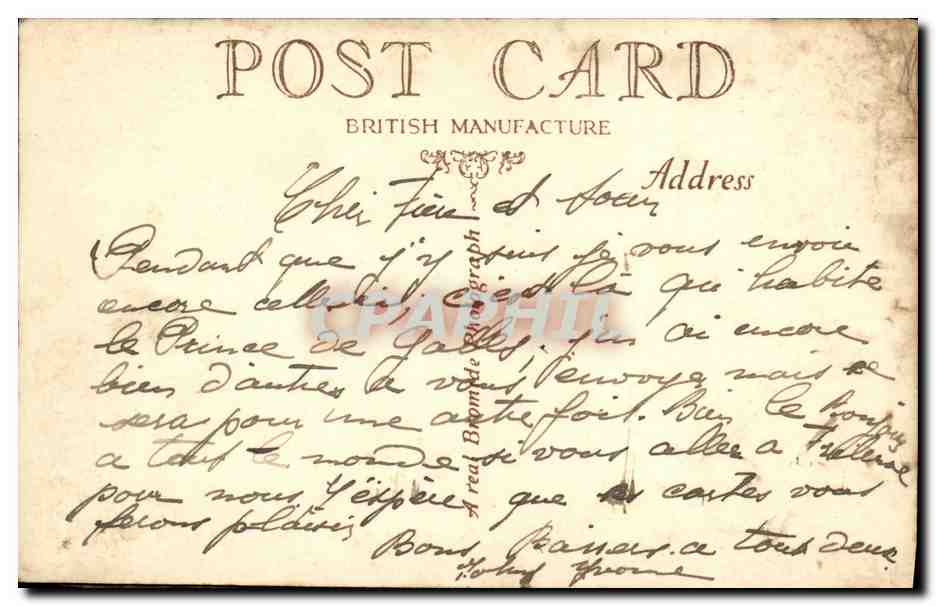 POST CARD
BRITISH MANUFACTURE
Address
A real Bromide Photograph
CPAPHIL
Cher et soeur
Pendant que j'y suis je vous envoie
encore c'est là qu'habite
le Prince de Galles, j'en ai encore
bien d'autres a vous envoyer mais se
sera pour une autre fois. Bien le Bonjour
a tout le monde si vous aller a
pour nous J'espère que ses cartes vous
ferons plaisir
Bons Baisers a tous deux
Yvonne